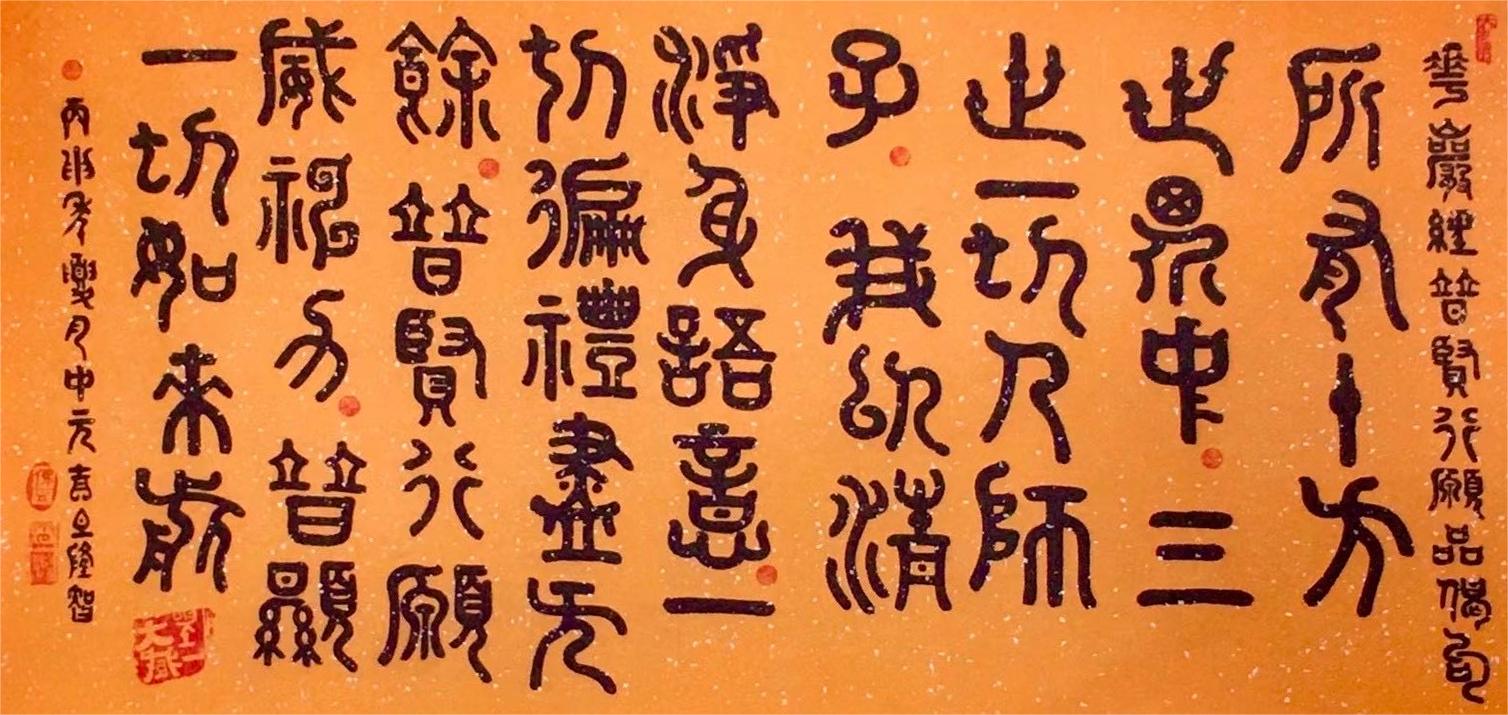 華嚴經普賢行願品偈句
所有十方
世界中三
世一切人師
子我以清
淨身語意一
切徧禮盡无
餘普賢行願
威神力普顯
一切如来前
丙申年月中元隆智